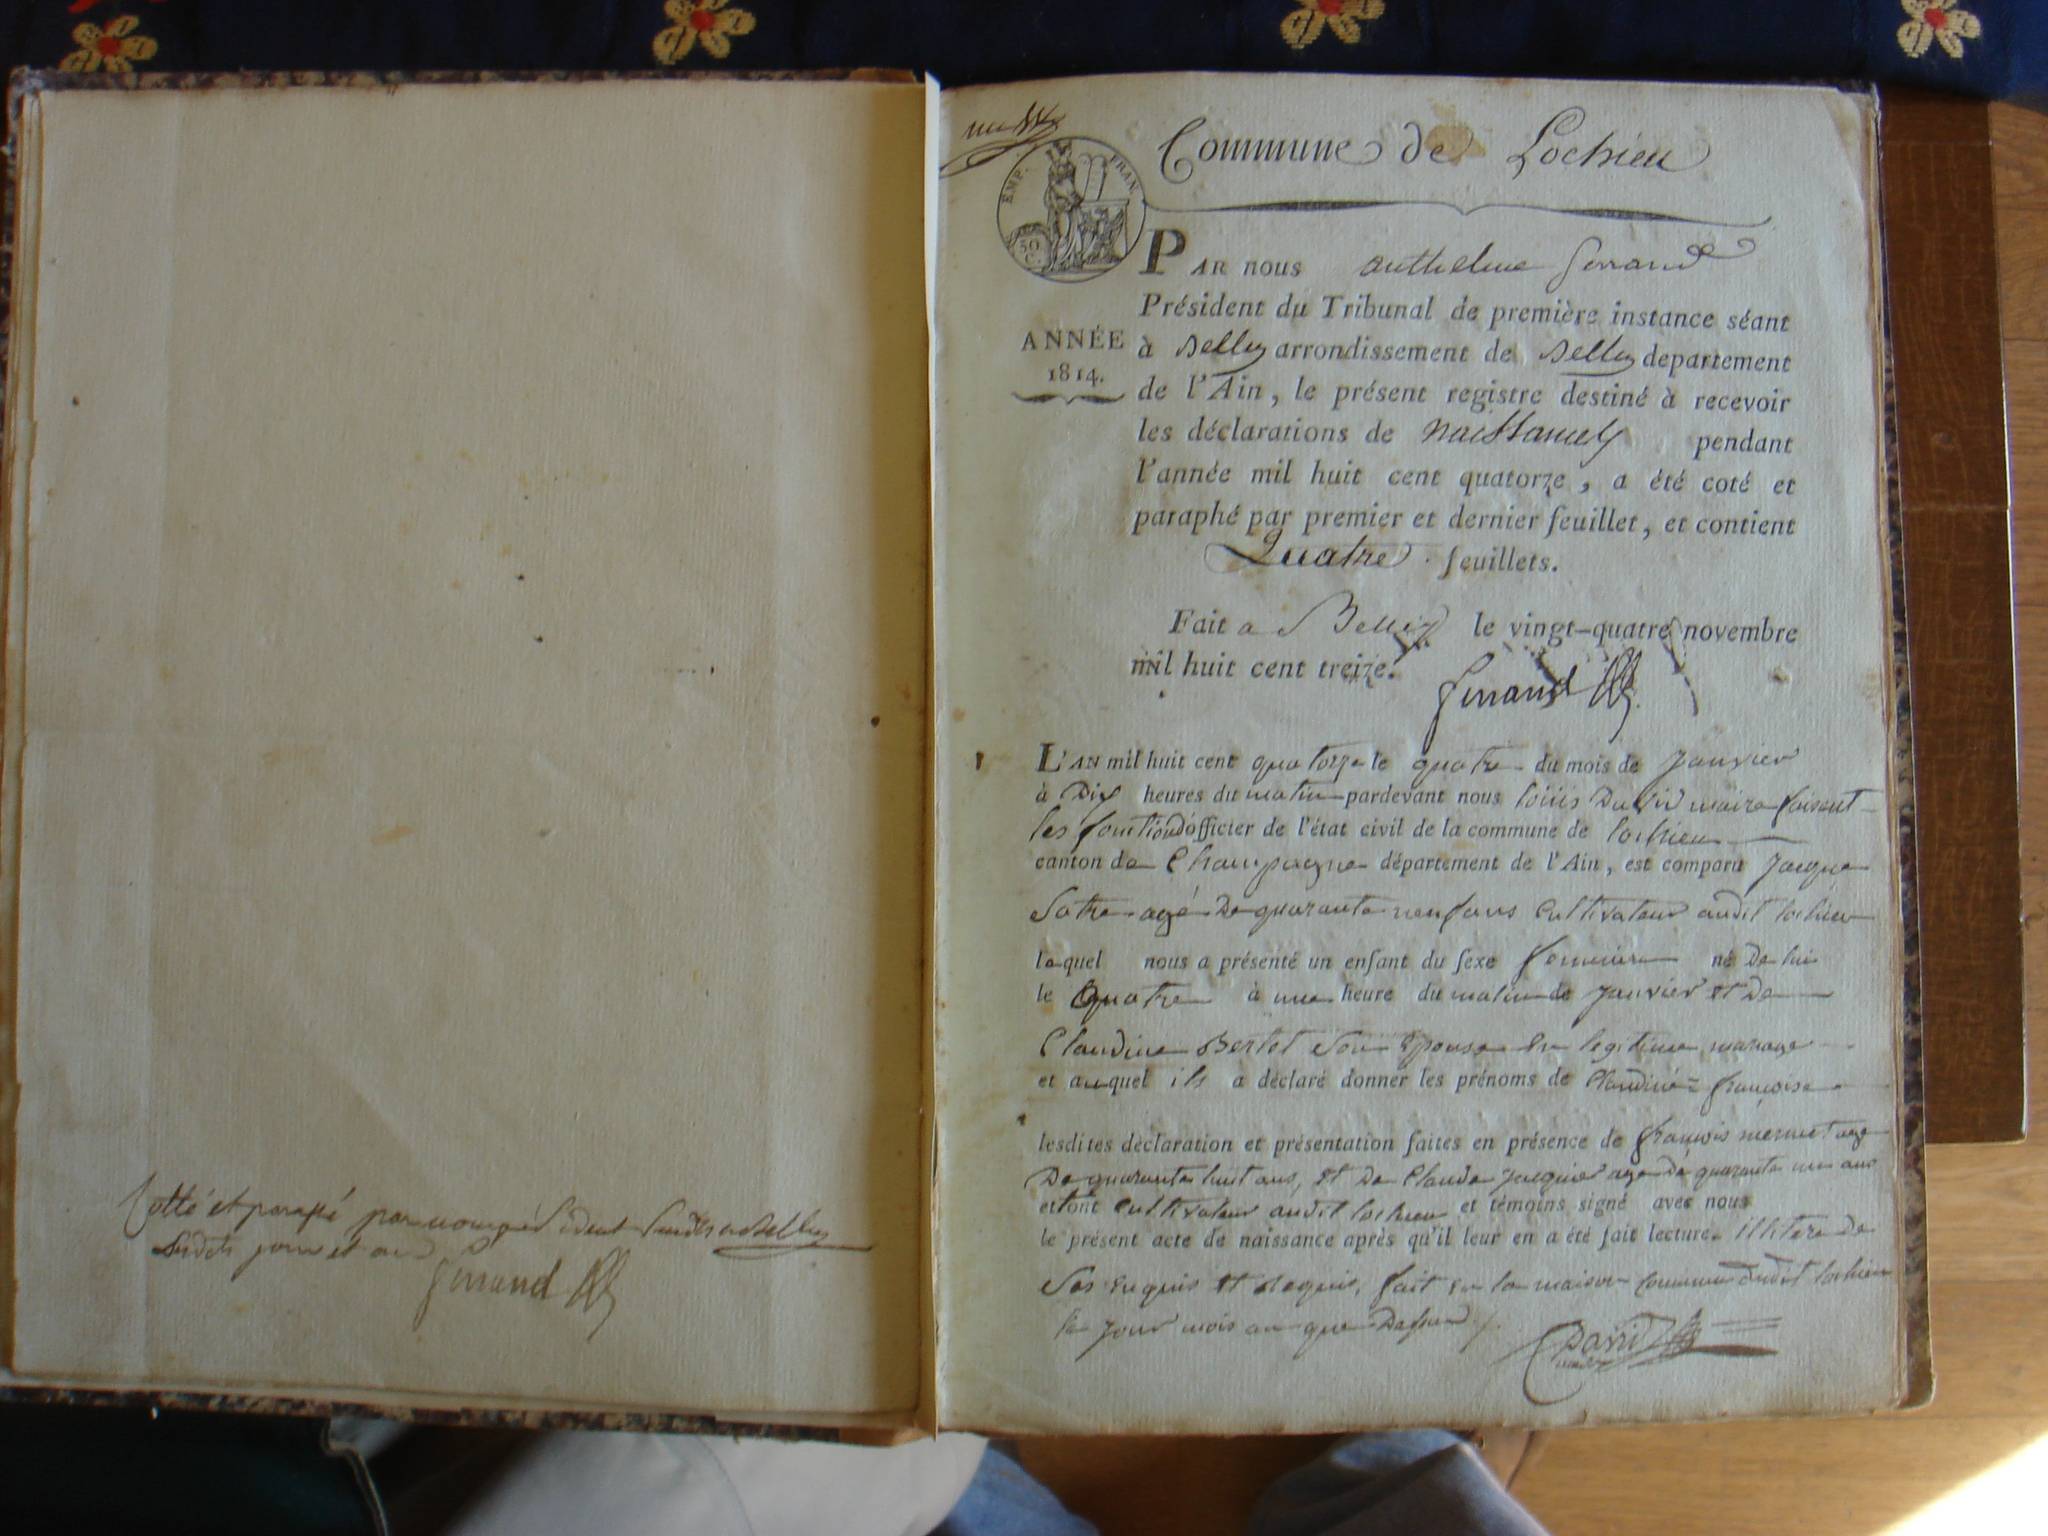 Cotté et parapé par nous président
jour et an
Ferrand
Commune de Lochieu
EMP. FRAN.
50 C.
PAR NOUS anthelme ferrand
Président du Tribunal de première instance séant
ANNÉE
1814.
à Belley arrondissement de Belley departement
de l'Ain, le présent registre destiné à recevoir
les déclarations de naissances pendant
l'année mil huit cent quatorze, a été coté et
paraphé par premier et dernier feuillet, et contient
Quatre feuillets.
Fait a Belley le vingt-quatre novembre
mil huit cent treize.
Ferrand
1
L'AN mil huit cent quatorze le quatre du mois de janvier
à Dix heures du matin pardevant nous louis David maire faisent
les fonctions d'officier de l'état civil de la commune de lochieu
canton de Champagne département de l'Ain, est comparu jacque
agé De quarante neuf ans cultivateur audit lochieu
lequel nous a présenté un enfant du sexe feminin né De lui
le quatre à une heure du matin de janvier et De
Claudine Bertet son epouse en legitime mariage
et auquel ils a déclaré donner les prénoms de Claudine = françoise
lesdites déclaration et présentation faites en présence de françois mermet agé
De quarante huit ans, et De Claude jacquier agé de quarante un ans
et tont cultivateur audit lochieu et témoins signé avec nous
le présent acte de naissance après qu'il leur en a été fait lecture. illitere de
fait en la maison commune dudit lochieu
le jour mois an que Dessus
David